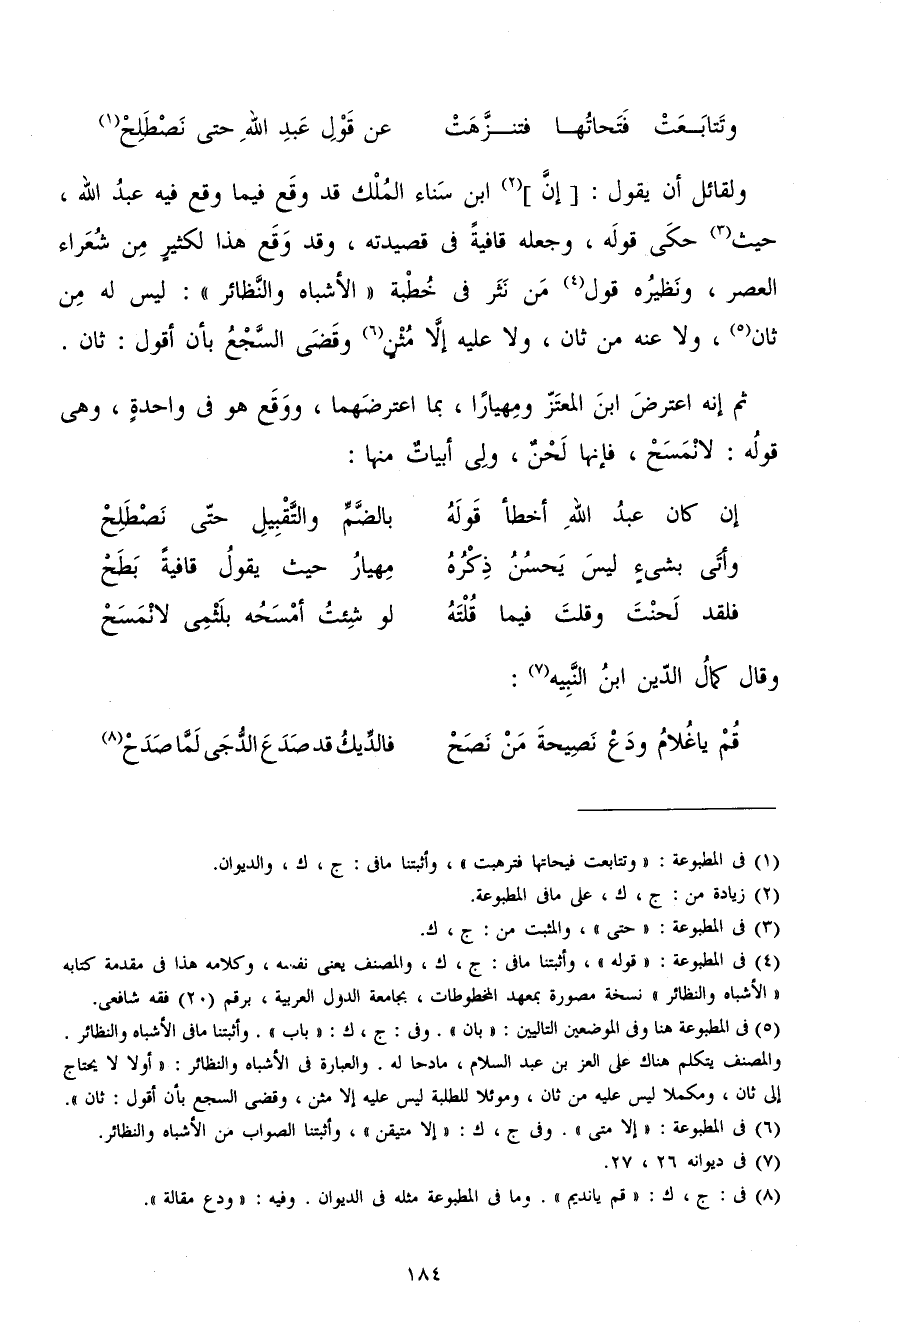 وتَتابَـعَتْ فَتَحاتُهـا فتنــزَّهَتْ عن قَوْلِ عَبدِ اللهِ حتى نَصْطَلِحْ(١)
ولقائل أن يقول : [ إنَّ ](٢) ابن سَناء المُلْك قد وقَع فيما وقع فيه عبدُ الله ،
حيث(٣) حكَى قولَه ، وجعله قافيةً فى قصيدته ، وقد وَقَع هذا لكثيرٍ مِن شُعَراء
العصر ، ونَظيرُه قول(٤) مَن نَثَر فى خُطْبة « الأشباه والنَّظائر » : ليس له مِن
ثان(٥) ، ولا عنه من ثان ، ولا عليه إلَّا مُثْنٍ(٦) وقَضَى السَّجْعُ بأن أقول : ثان .
ثم إنه اعترضَ ابنَ المعتَزّ ومِهيارًا ، بما اعترضَهما ، ووقَع هو فى واحدةٍ ، وهى
قولُه : لانْمَسَحْ ، فإنها لَحْنٌ ، ولِى أبياتٌ منها :
إن كان عبدُ اللهِ أخطأ قَولَهُ بالضَّمِّ والتَّقْبِيلِ حتّى نَصْطَلِحْ
وأَتَى بشىءٍ ليسَ يَحسُنُ ذِكْرُهُ مِهيارُ حيث يقولُ قافيةً بَطَحْ
فلقد لَحنْتَ وقلتَ فيما قُلْتَهُ لو شِئتُ أمْسَحُه بلَثْمِى لانْمَسَحْ
وقال كمالُ الدّين ابنُ النَّبِيه(٧) :
قُمْ ياغُلامُ ودَعْ نَصِيحةَ مَنْ نَصَحْ فالدِّيكُ قد صَدَعَ الدُّجَى لَمَّا صَدَحْ(٨)
(١) فى المطبوعة : « وتتابعت فيحاتها فترهبت » ، وأثبتنا مافى : ج ، ك ، والديوان.
(٢) زيادة من : ج ، ك ، على مافى المطبوعة.
(٣) فى المطبوعة : « حتى » ، والمثبت من : ج ، ك.
(٤) فى المطبوعة : « قوله » ، وأثبتنا مافى : ج ، ك ، والمصنف يعنى نفسه ، وكلامه هذا فى مقدمة كتابه
« الأشباه والنظائر » نسخة مصورة بمعهد المخطوطات ، بجامعة الدول العربية ، برقم (٢٠) فقه شافعى.
(٥) فى المطبوعة هنا وفى الموضعين التاليين : « بان » . وفى : ج ، ك : « باب » . وأثبتنا مافى الأشباه والنظائر .
والمصنف يتكلم هناك على العز بن عبد السلام ، مادحا له . والعبارة فى الأشباه والنظائر : « أولا لا يحتاج
إلى ثان ، ومكملا ليس عليه من ثان ، وموئلا للطلبة ليس عليه إلا مثن ، وقضى السجع بأن أقول : ثان ».
(٦) فى المطبوعة : « إلا متى » . وفى ج ، ك : « إلا متيقن » ، وأثبتنا الصواب من الأشباه والنظائر.
(٧) فى ديوانه ٢٦ ، ٢٧.
(٨) فى : ج ، ك : « قم يانديم » . وما فى المطبوعة مثله فى الديوان . وفيه : « ودع مقالة ».
١٨٤